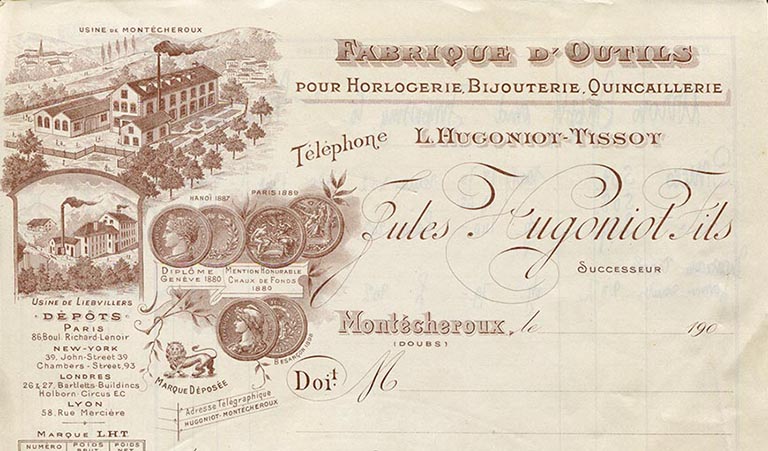 USINE DE MONTÉCHEROUX
FABRIQUE D'OUTILS
POUR HORLOGERIE, BIJOUTERIE, QUINCAILLERIE
Téléphone L. HUGONIOT-TISSOT
Jules Hugoniot Fils
SUCCESSEUR
HANOÏ 1887
PARIS 1889
DIPLÔME
GENÈVE 1880
MENTION HONORABLE
CHAUX DE FONDS
1880
BESANÇON
USINE DE LIEBVILLERS
DÉPÔTS
PARIS
86, Boul. Richard-Lenoir
NEW-YORK
39, John-Street 39
Chambers-Street, 93
LONDRES
26 & 27, Bartletts-Buildings
Holborn-Circus E.C
LYON
58, Rue Mercière
MARQUE L.H.T.
NUMÉRO POIDS BRUT POIDS NET
MARQUE DÉPOSÉE
Adresse Télégraphique
HUGONIOT-MONTÉCHEROUX
Montécheroux, le 190
(DOUBS)
Doit M